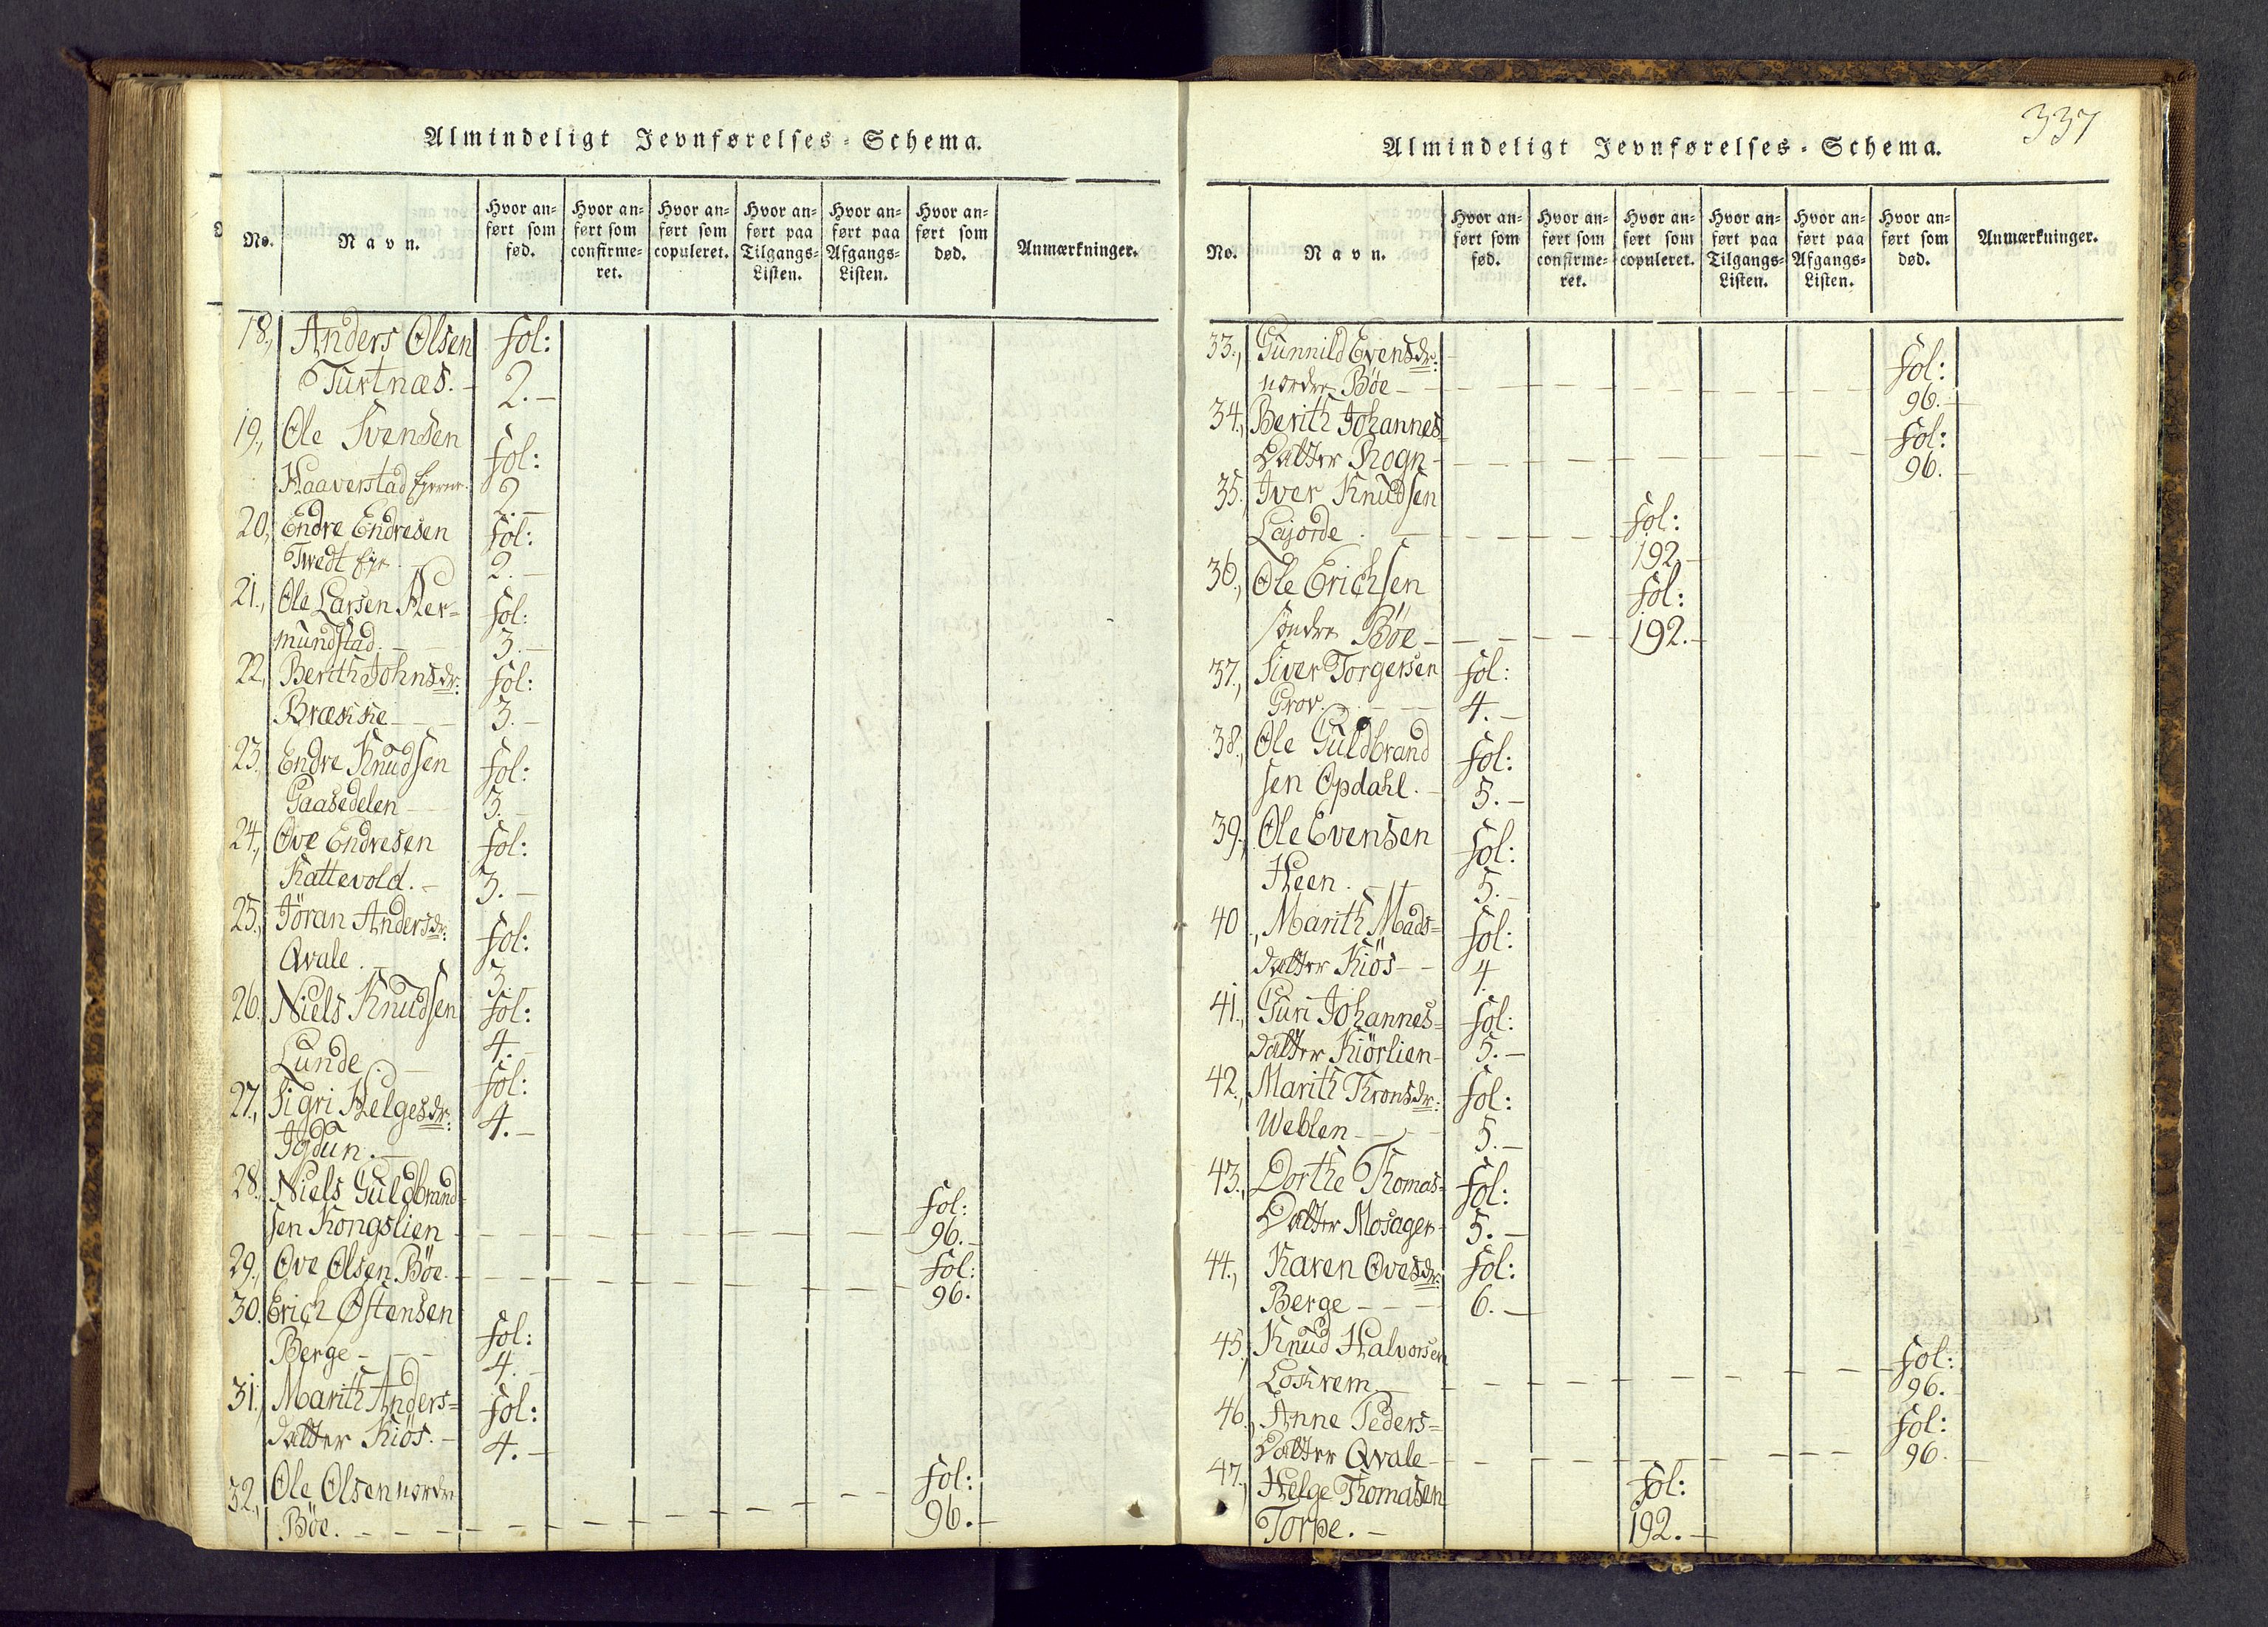 Almindeligt Jevnførelses-Schema.
No.
Navn.
Hvor an-
ført som
fød.
Hvor an-
ført som
confirme-
ret.
Hvor an-
ført som
copuleret.
Hvor an-
ført paa
Tilgangs-
Listen.
Hvor an-
ført paa
Afgangs-
Listen.
Hvor an-
ført som
død.
Anmærkninger.
18., Anders Olsen fol:
Turtnæs. - 2. -
19., Ole Svensen fol:
Haaverstad 2. -
20, Endre Endresen fol:
Twedt 2. -
21., Ole Larsen Her- fol:
mundstad. - 3. -
22, Berith Johnsdr: fol:
Brække - - 3. -
23. Endre Knudsen fol:
Gaasedelen - 3. -
24., Ove Endresen fol:
Kattevold. - 3. -
25., Jöran Andersdr: fol:
Qvale. - 3. -
26. Niels Knudsen fol:
Lunde. - 4. -
27., Sigri Helgesdr: fol:
Igdun. - 4. -
28., Niels Guldbrand fol:
sen Kongslien - 96. -
29., Ove Olsen Böe - fol:
96.
30. Erich Østensen fol:
Berge - - 4. -
31., Marith Anders= fol:
datter Kiös. - 4. -
32., Ole Olsen nordre fol:
Böe. - - 96. -
337
Almindeligt Jevnførelses-Schema.
No.
Navn.
Hvor an-
ført som
fød.
Hvor an-
ført som
confirme-
ret.
Hvor an-
ført som
copuleret.
Hvor an-
ført paa
Tilgangs-
Listen.
Hvor an-
ført paa
Afgangs-
Listen.
Hvor an-
ført som
død.
Anmærkninger.
33., Gunnild Evensdr: fol:
nordre Böe - 96. -
34., Berith Johannes= fol:
Datter Rogn - 96.
35. Iver Knudsen fol:
Lajorde. - 192 -
36., Ole Erichsen fol:
söndre Böe - 192. -
37., Siver Torgersen fol:
Grov. - - 4. -
38., Ole Guldbrand fol:
sen Opdahl. - 5. -
39., Ole Evensen fol:
Heen. - 5. -
40., Marith Mads= fol:
datter Kiös - - 4.
41., Guri Johannes= fol:
datter Kiörlien - 5. -
42., Marith Thronsdr: fol:
Weblen - - 5. -
43., Dorthe Thomas= fol:
Datter Mosager - 5. -
44., Karen Ovesdr: fol:
Berge - - - 6. -
45., Knud Halvorsen fol:
Lokrem - 96. -
46., Anne Peders= fol:
Datter Qvale - 96. -
47., Helge Thomasen fol:
Torpe. - 192. -